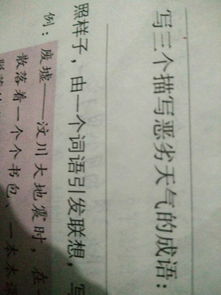 写三个描写恶劣天气的成语：
照样子，由一个词语引发联想，写
例：废墟——汶川大地震时，在
散落着一个个书包，一本本